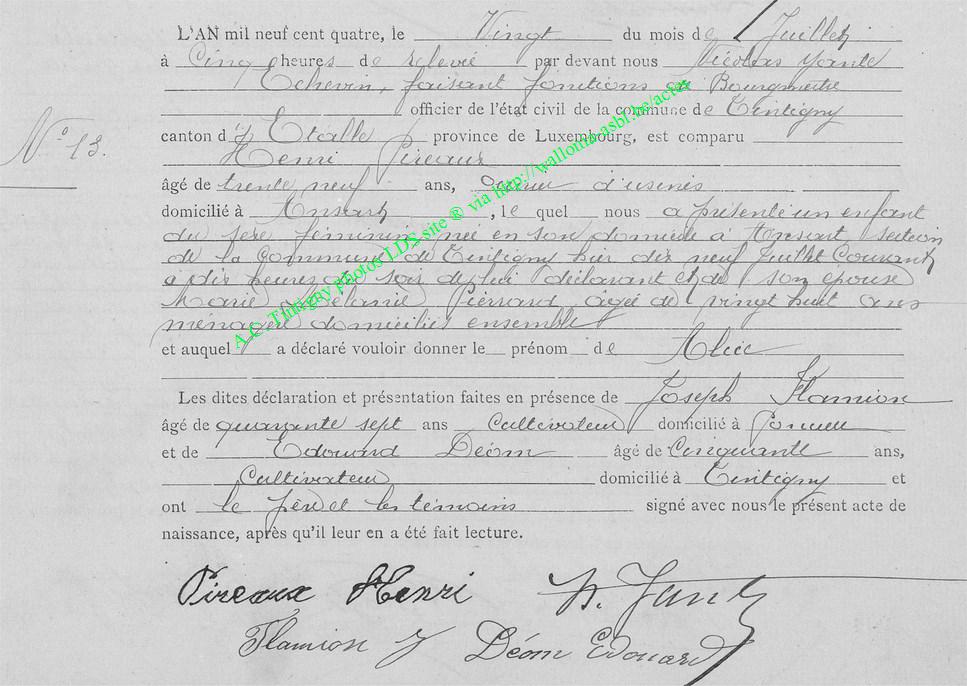 L'AN mil neuf cent quatre, le Vingt du mois de Juillet
à Cinq heures de relevée par devant nous Nicolas Yante
Echevin, faisant fonctions de Bourgmestre
officier de l'état civil de la commune de Tintigny
canton d' Etalle province de Luxembourg, est comparu
N° 13.
Henri Pireaux
âgé de trente neuf ans, ouvrier d'usines
domicilié à Ansart, le quel nous a présenté un enfant
du sexe féminin, née en son domicile à Ansart section
de la Commune de Tintigny hier dix neuf Juillet Courant
à dix heures du soir de lui déclarant et de son épouse
Marie Mélanie Piérrard, agée de vingt huit ans
ménagère domiciliés ensemble
et auquel a déclaré vouloir donner le prénom de Alice
Les dites déclaration et présentation faites en présence de Joseph Flamion
âgé de quarante sept ans Cultivateur domicilié à
et de Edouard Déom âgé de Cinquante ans,
Cultivateur domicilié à Tintigny et
ont le père et les témoins signé avec nous le présent acte de
naissance, après qu'il leur en a été fait lecture.
Pireaux Henri N. Yante
Flamion J Déom Edouard
A.C. Tintigny photos LDS site ® via http://wallonia-asbl.be/actes